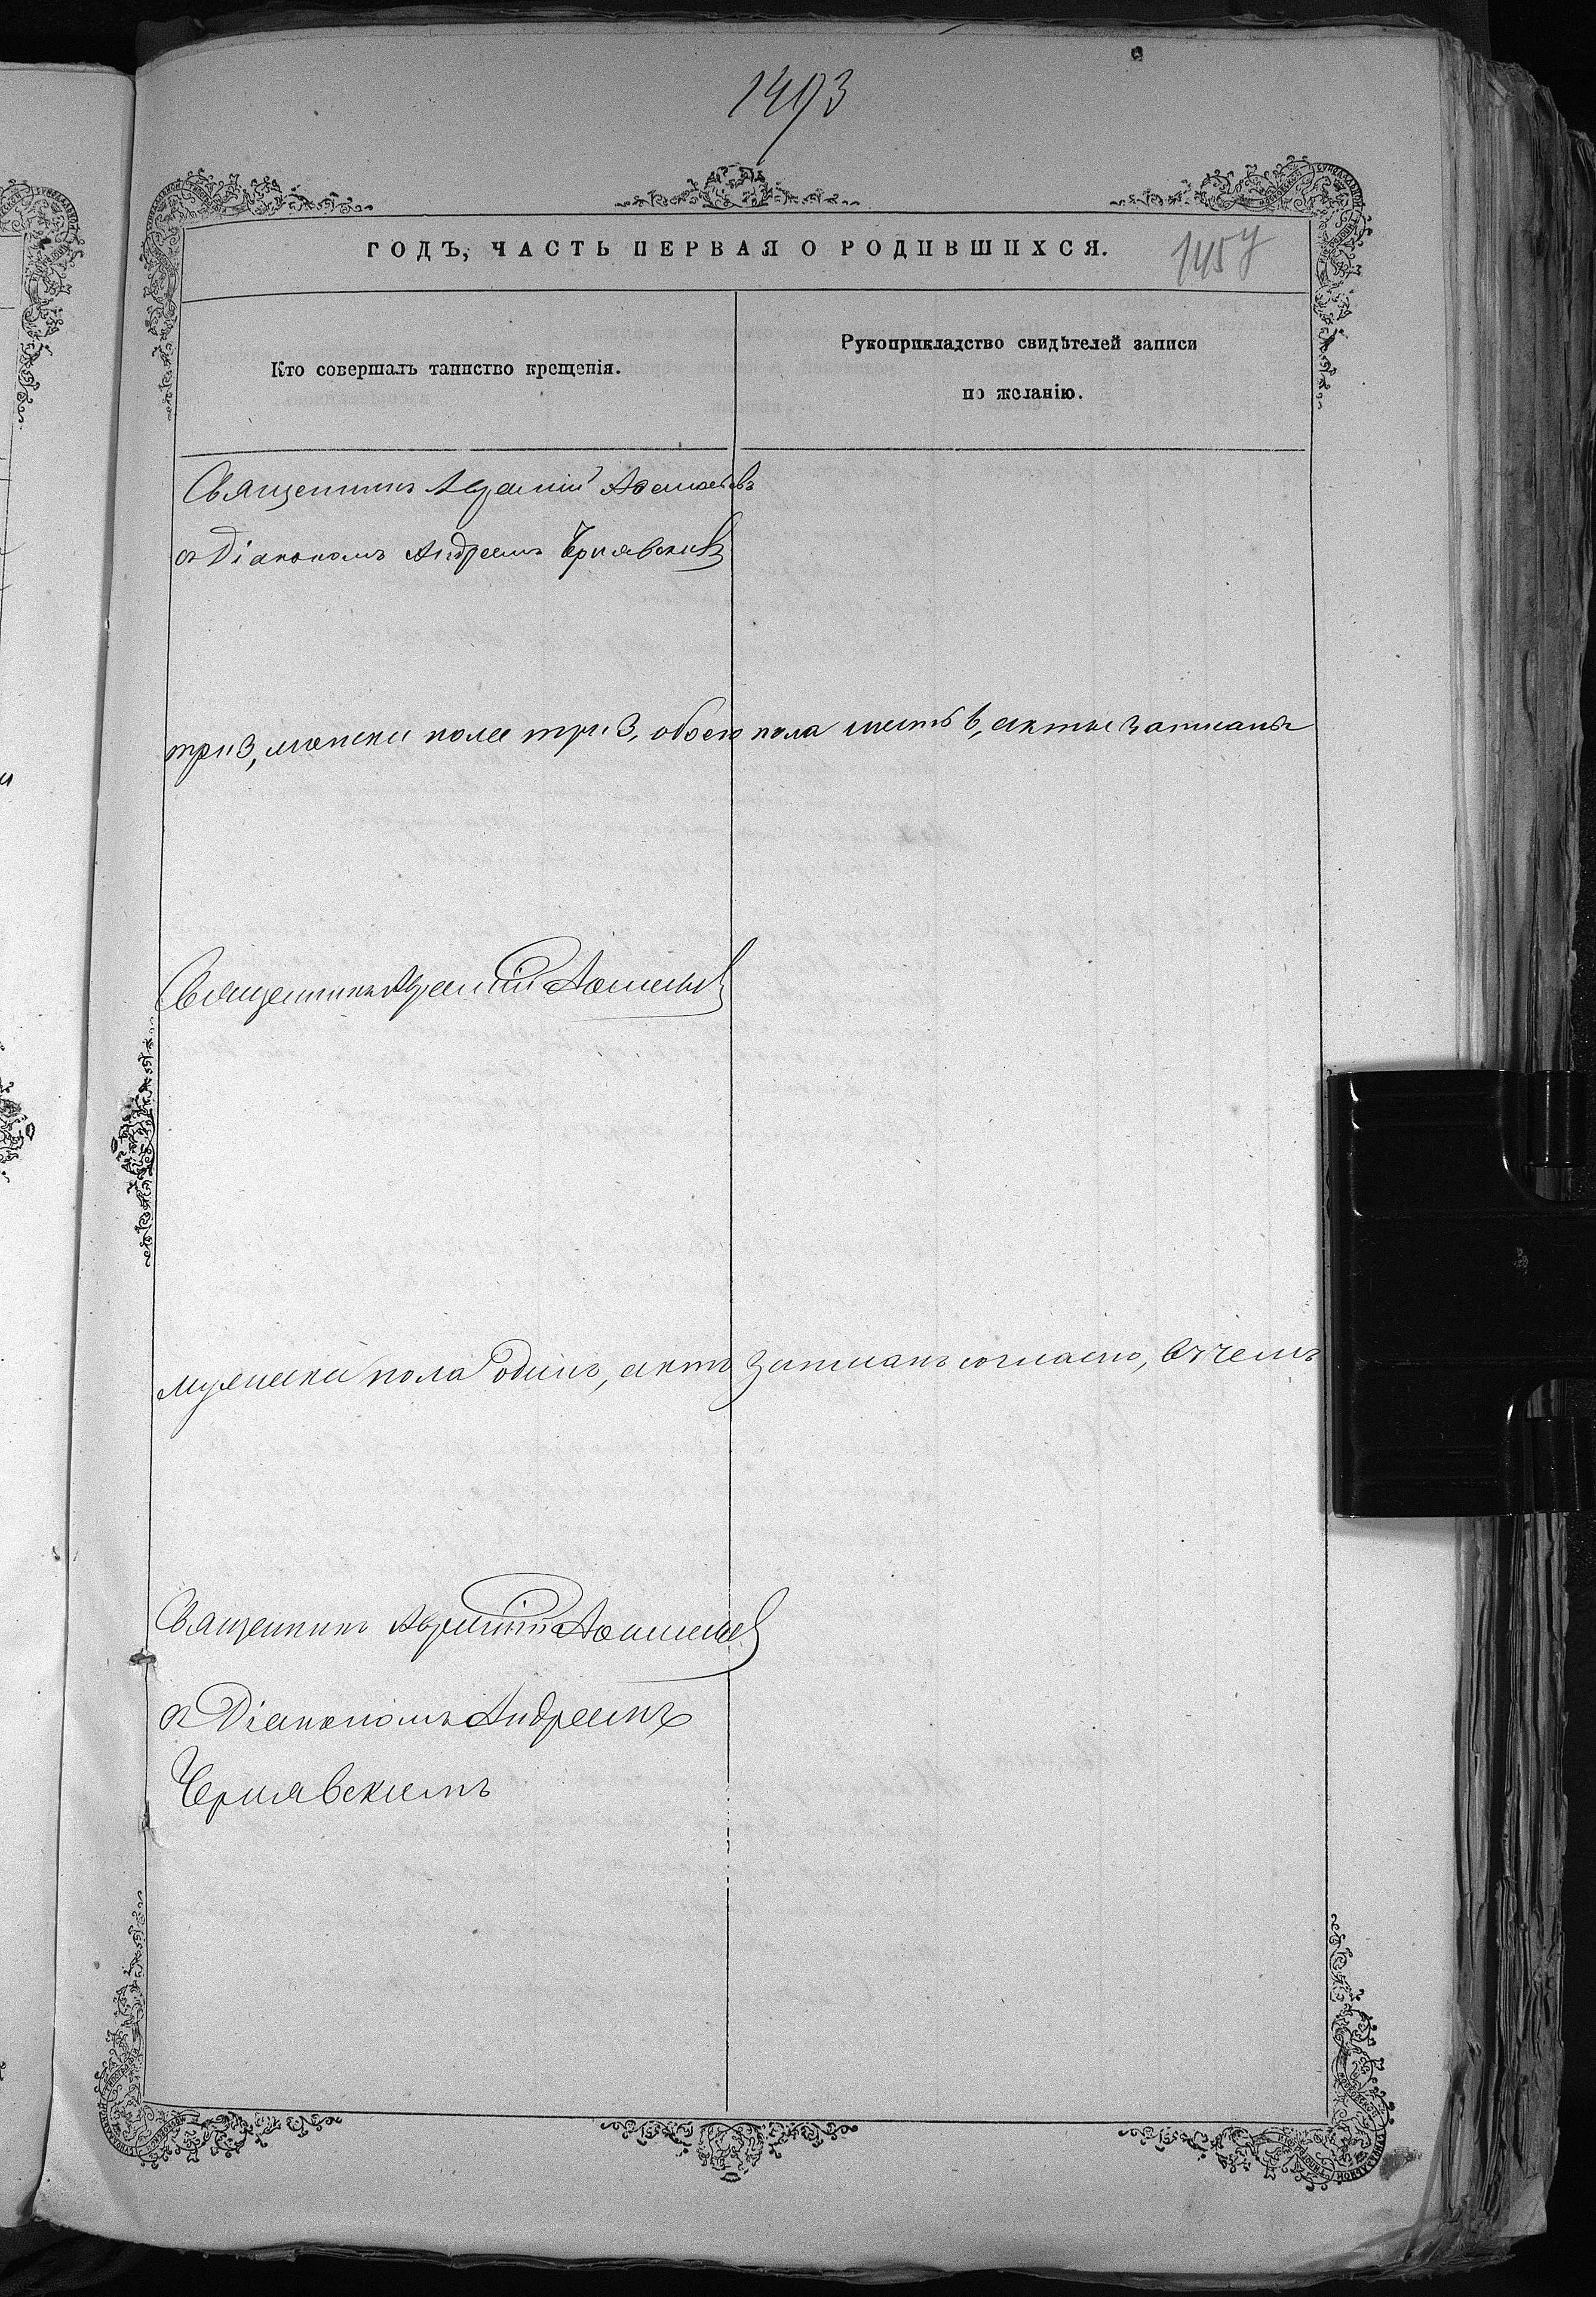 1493
ГОДЪ, ЧАСТЬ ПЕРВАЯ О РОДИВШИХСЯ.
145
Кто совершалъ таинство крещенія.
Рукоприкладство свидѣтелей записи
по желанію.
Священникъ
съ Діакономъ Андреемъ Чернявскимъ
три 3, женска пола три 3, обоего пола шесть 6, акты записаны
Священникъ
мужеска пола одинъ, актъ записанъ согласно, въ чемъ
Священникъ
съ Діакономъ Андреемъ
Чернявскимъ